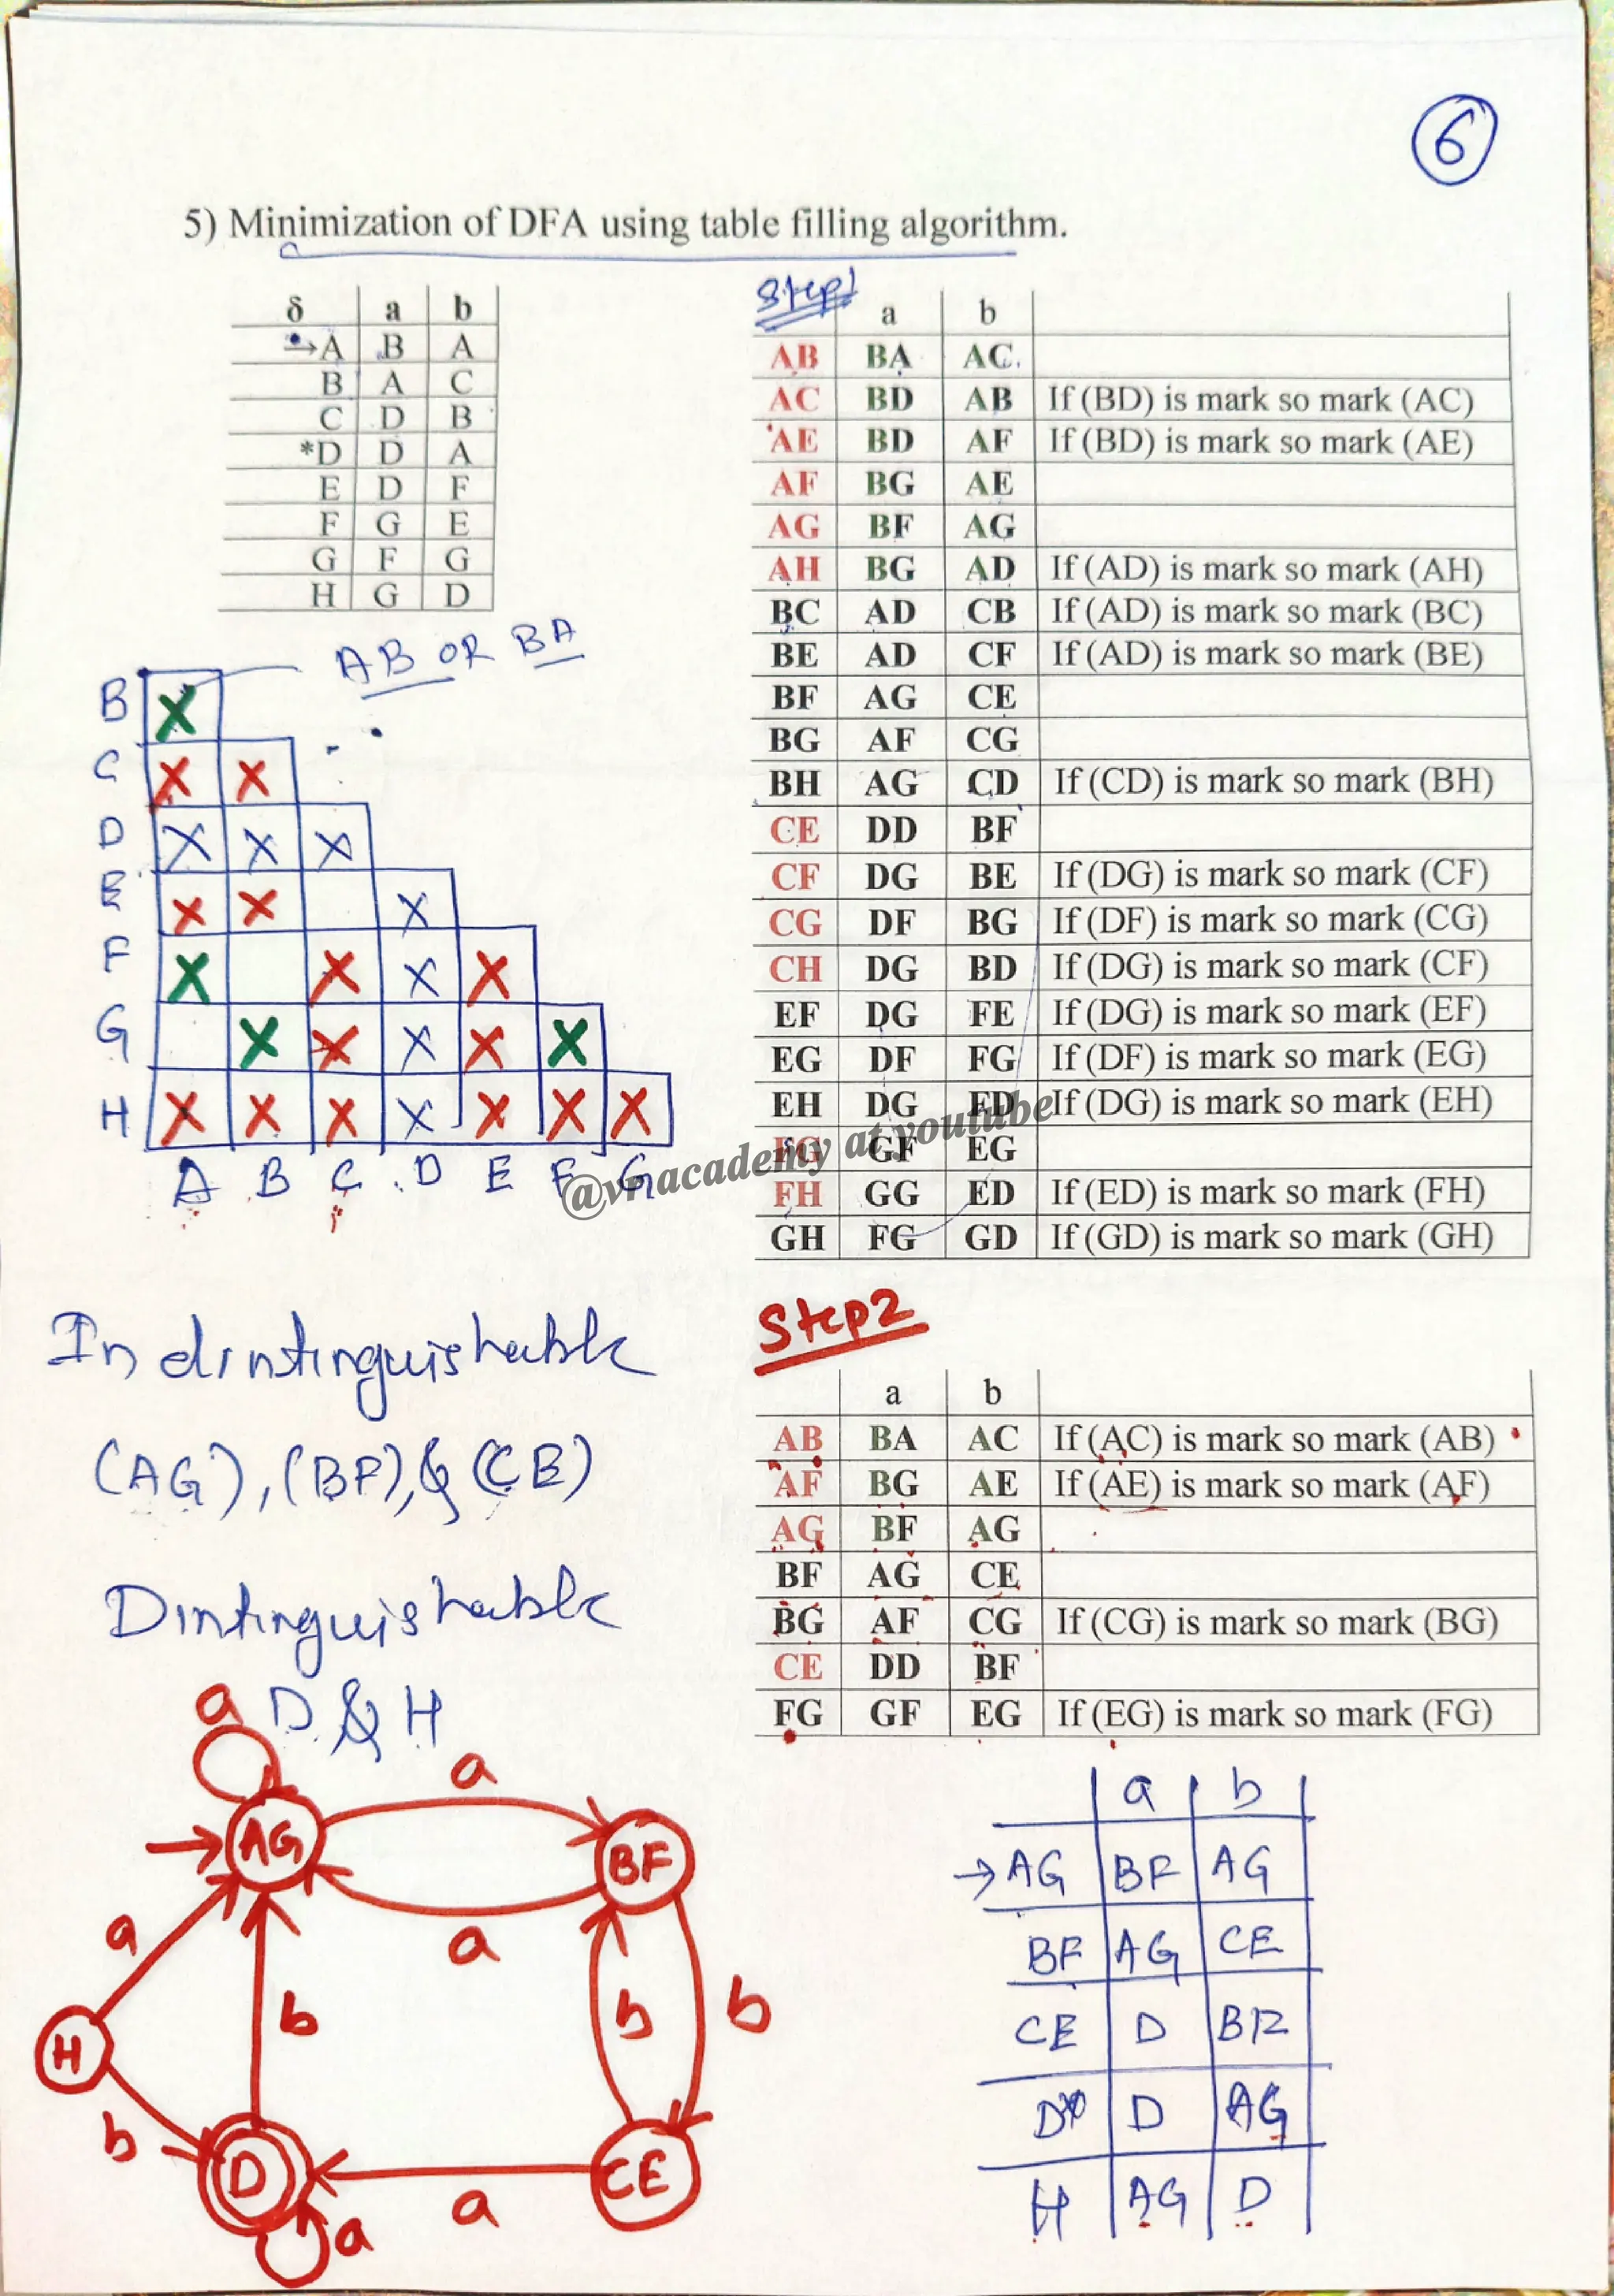 6
5) Minimization of DFA using table filling algorithm.
δ a b
→A B A
B A C
C D B
*D D A
E D F
F G E
G F G
H G D
AB OR BA
B X
C X X
D X X X
E X X X
F X X X X
G X X X X X
H X X X X X X X
A B C D E F G
Step1
a b
AB BA AC
AC BD AB If (BD) is mark so mark (AC)
AE BD AF If (BD) is mark so mark (AE)
AF BG AE
AG BF AG
AH BG AD If (AD) is mark so mark (AH)
BC AD CB If (AD) is mark so mark (BC)
BE AD CF If (AD) is mark so mark (BE)
BF AG CE
BG AF CG
BH AG CD If (CD) is mark so mark (BH)
CE DD BF
CF DG BE If (DG) is mark so mark (CF)
CG DF BG If (DF) is mark so mark (CG)
CH DG BD If (DG) is mark so mark (CF)
EF DG FE If (DG) is mark so mark (EF)
EG DF FG If (DF) is mark so mark (EG)
EH DG FD If (DG) is mark so mark (EH)
FG GF EG
FH GG ED If (ED) is mark so mark (FH)
GH FG GD If (GD) is mark so mark (GH)
@vnacademy at youtube
In dintinguishable
(AG), (BF), & (CE)
Dintinguishable
D & H
Step2
a b
AB BA AC If (AC) is mark so mark (AB)
AF BG AE If (AE) is mark so mark (AF)
AG BF AG
BF AG CE
BG AF CG If (CG) is mark so mark (BG)
CE DD BF
FG GF EG If (EG) is mark so mark (FG)
a
a
AG
BF
a
a
b
b
b
H
b
D
a
CE
a
a b
→AG BF AG
BF AG CE
CE D BF
D* D AG
H AG D